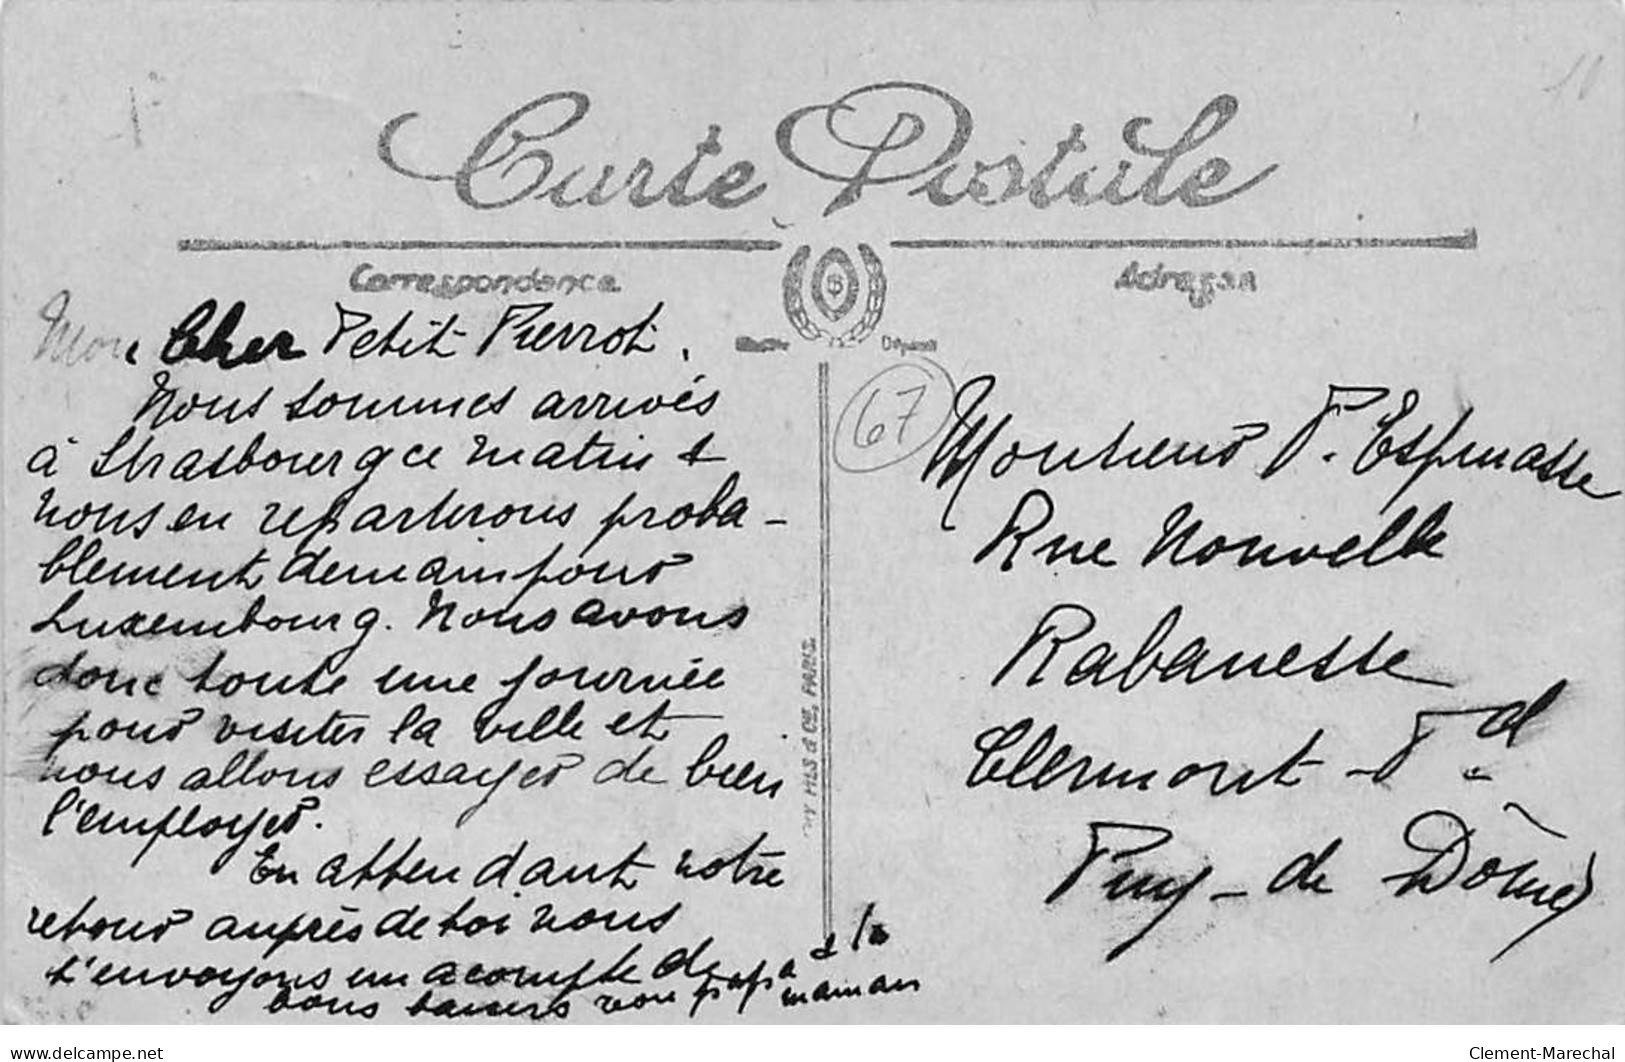 Carte Postale
Correspondance
Adresse
Mon Cher Petit Pierrot,
Nous sommes arrivés
à Strasbourg ce matin &
nous en repartirons proba-
blement demain pour
Luxembourg. Nous avons
donc toute une journée
pour visiter la ville et
nous allons essayer de bien
l'employer.
En attendant notre
retour auprès de toi nous
t'envoyons un acompte de
bons baisers ton papa & ta
maman
67
Monsieur P. Espinasse
Rue Nouvelle
Rabanesse
Clermont-Fd
Puy-de Dôme
HLS & CIE, PARIS
10
www.delcampe.net
Clement-Marechal